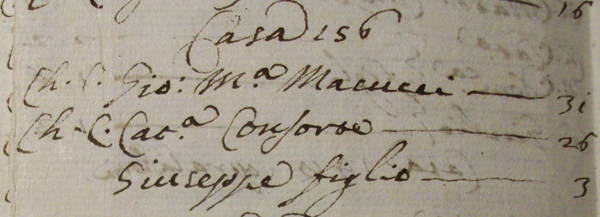 16
Casa 156
Ch. C. Gio: M.ª Macucci — 31
Ch. C. Cat.ª Consorte — 26
Giuseppe figlio — 3